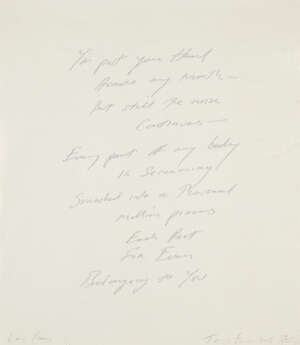 You put your Hand
Across my Mouth —
But still the noise
Continues —
Every part of my body
is Screaming
Smashed into a Thousand
million pieces
Each Part
For Ever
Belonging to You